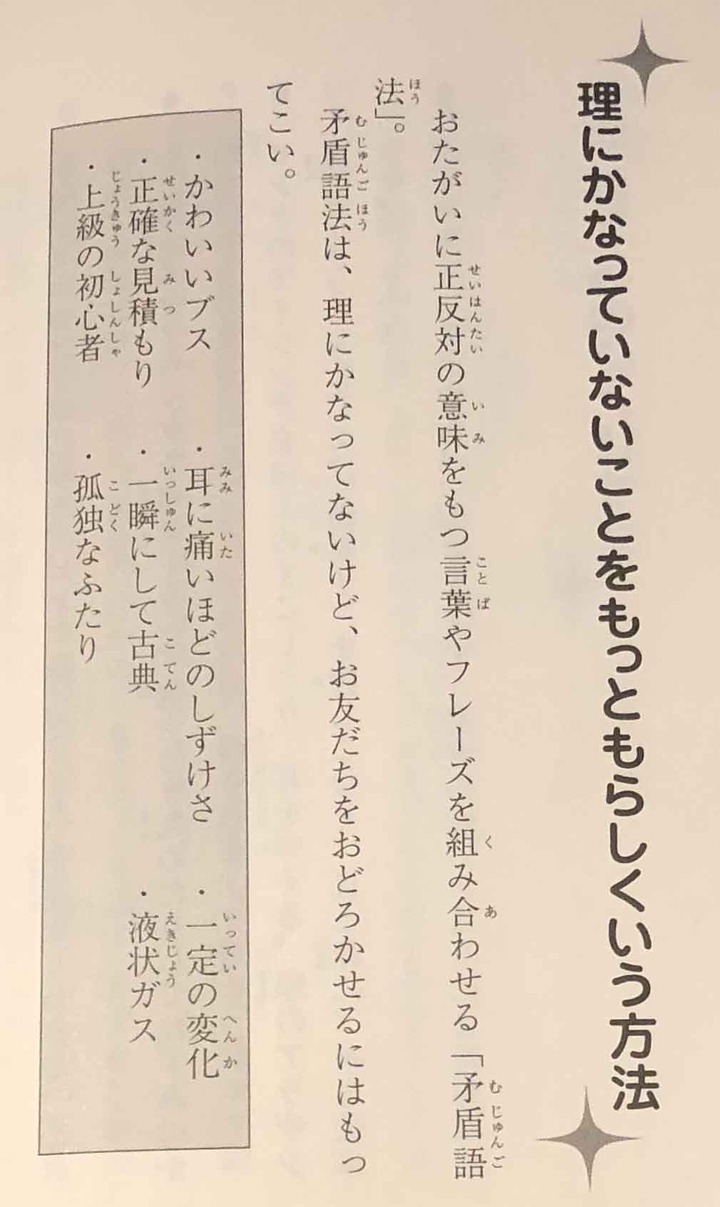 理にかなっていないことをもっともらしくいう方法
おたがいに正反対の意味をもつ言葉やフレーズを組み合わせる「矛盾語
法」。
矛盾語法は、理にかなってないけど、お友だちをおどろかせるにはもっ
てこい。
・かわいいブス ・耳に痛いほどのしずけさ ・一定の変化
・正確な見積もり ・一瞬にして古典 ・液状ガス
・上級の初心者 ・孤独なふたり